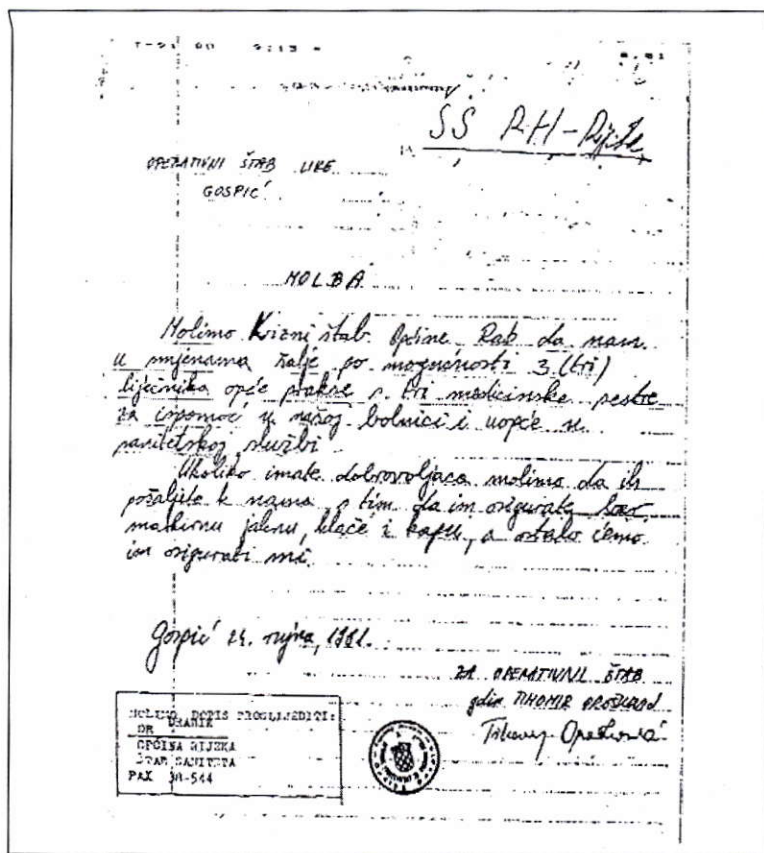 SS RH-Rijeka
OPERATIVNI ŠTAB LIKE
GOSPIĆ
MOLBA
Molimo Krizni štab Općine Rab da nam
u smjenama šalje po mogućnosti 3 (tri)
liječnika opće prakse i tri medicinske sestre
za ispomoć u našoj bolnici i uopće u
sanitetskoj službi.
Ukoliko imate dobrovoljaca molimo da ih
pošaljite k nama, s tim da im osigurate bar
maskirnu jaknu, hlače i kapu, a ostalo ćemo
im osigurati mi.
Gospić 24. rujna, 1991.
ZA OPERATIVNI ŠTAB
gdin TIHOMIR
MOLIMO DOPIS PROSLIJEDITI:
DR
OPĆINA RIJEKA
ŠTAB SANITETA
FAX 30-544